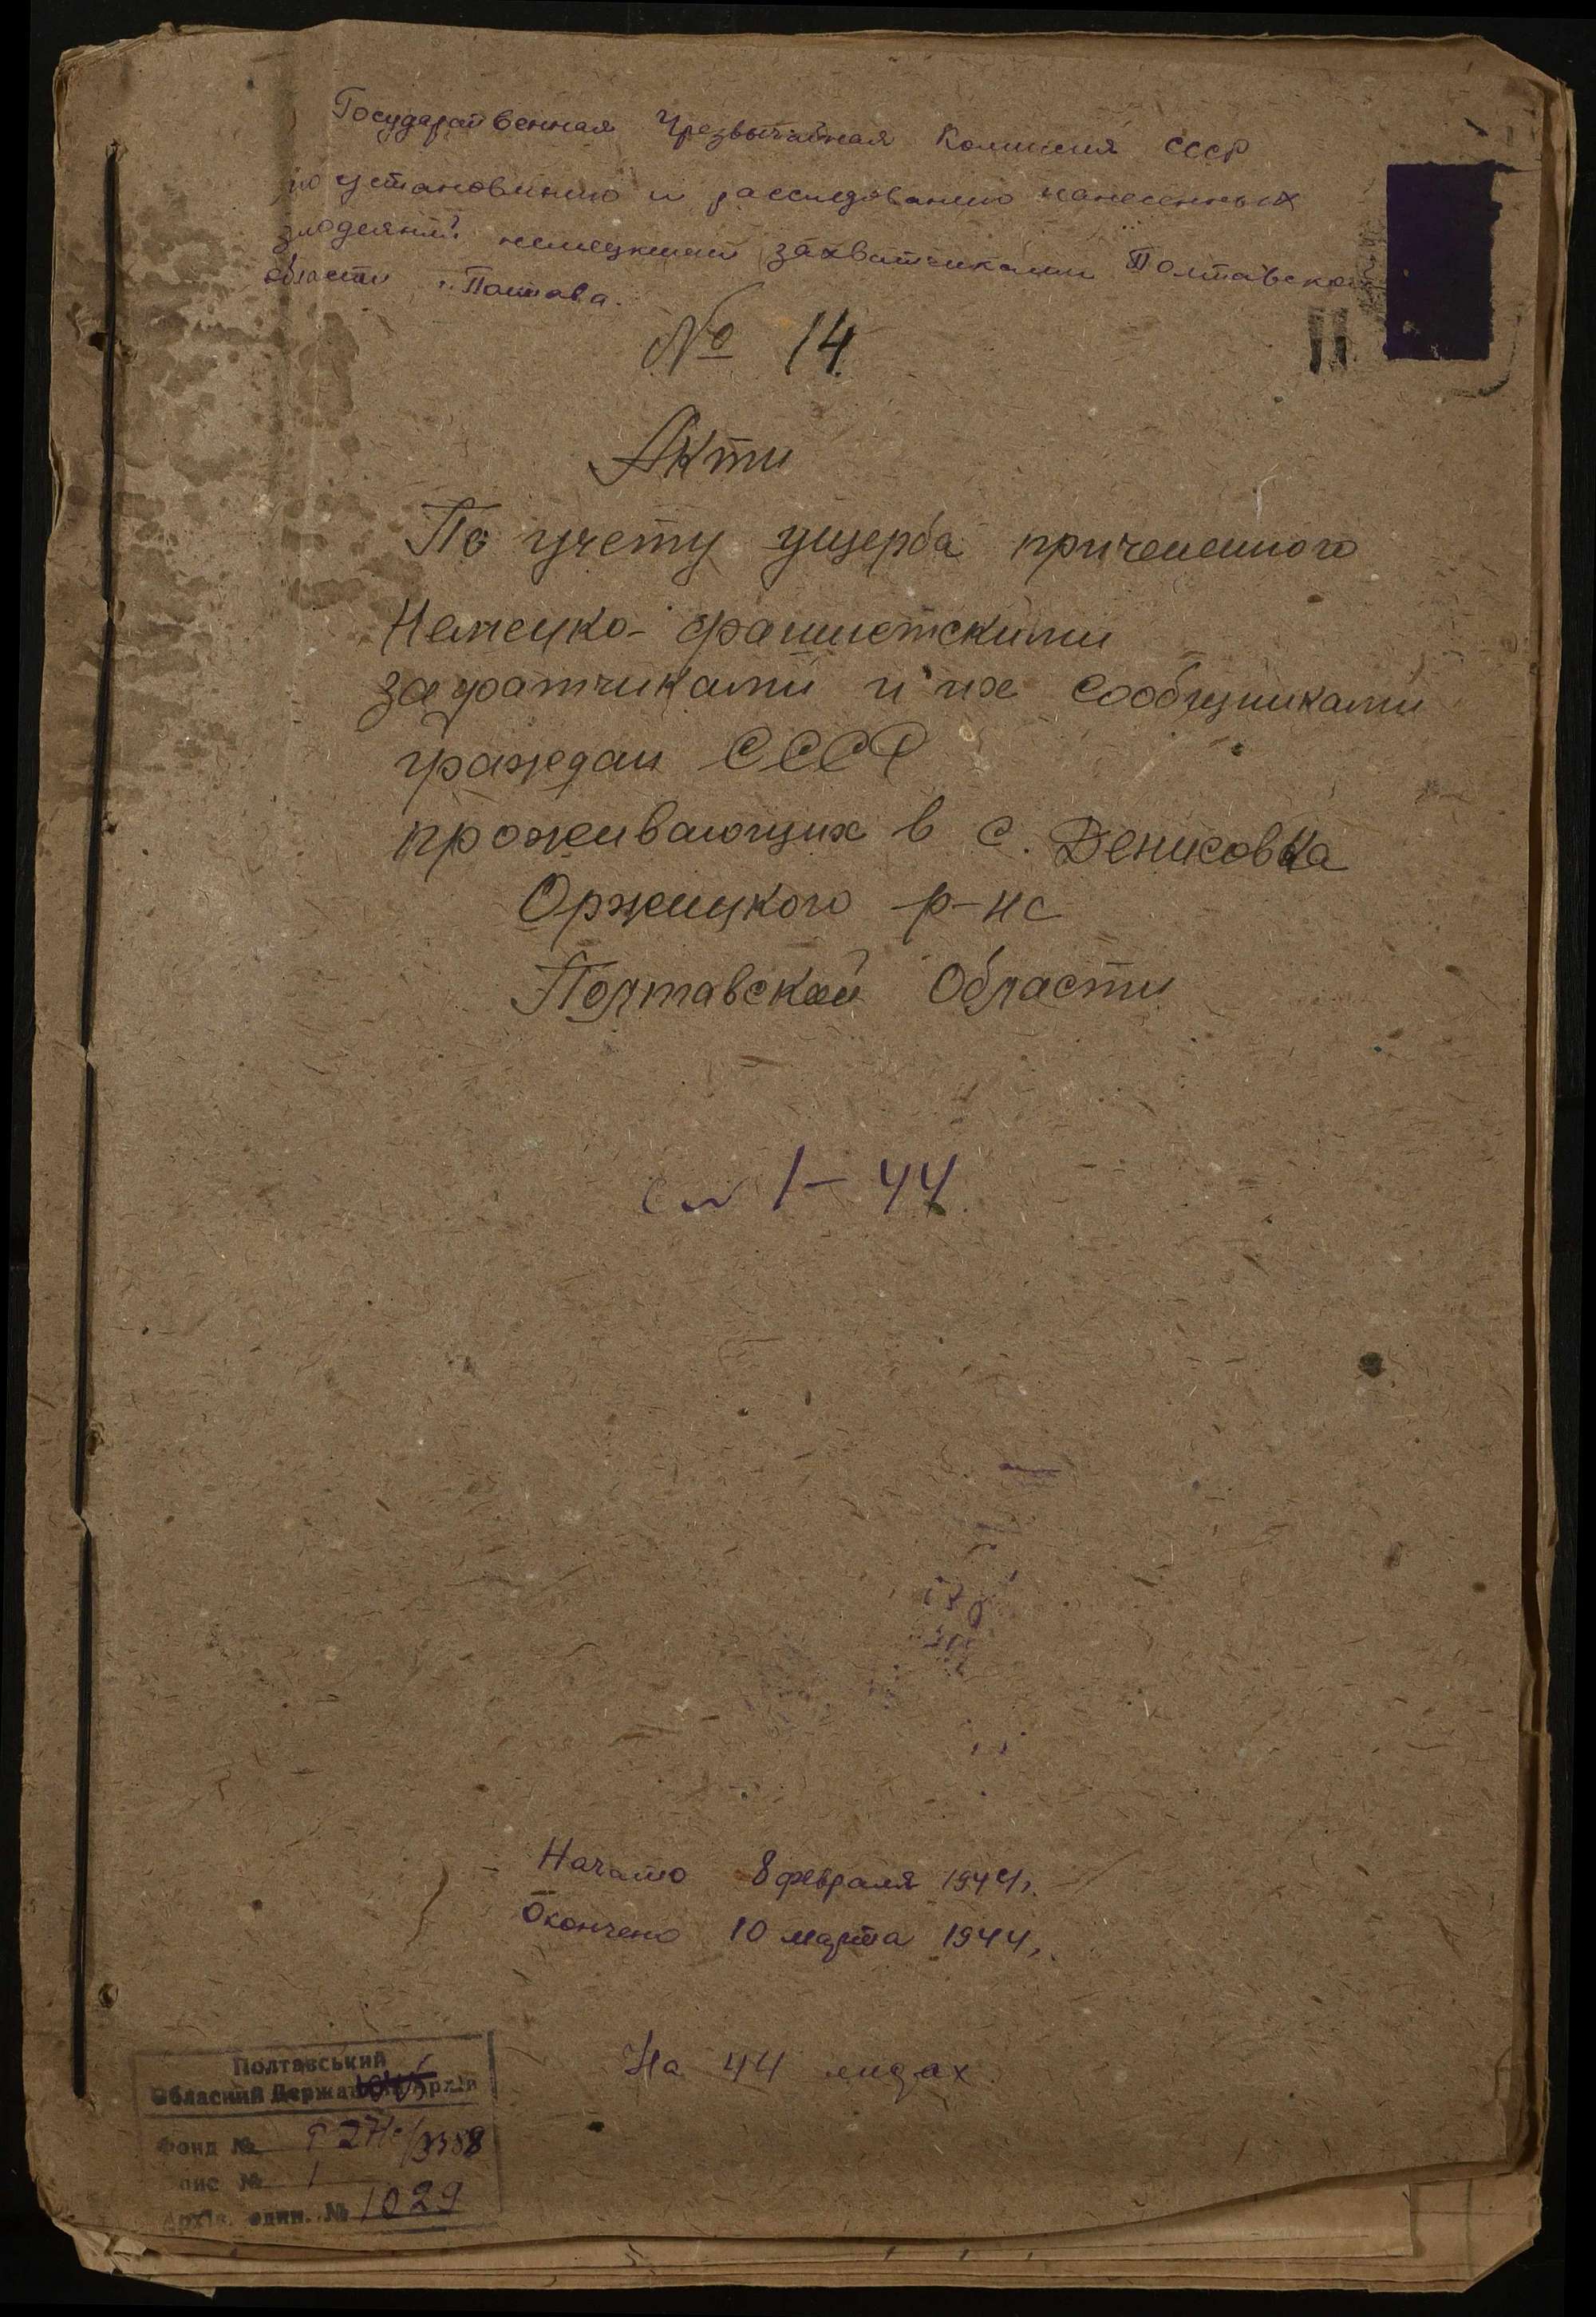 Государственная Чрезвычайная Комиссия СССР
по установлению и расследованию нанесенных
злодеяний немецкими захватчиками Полтавской
области г. Полтава.
№ 14
II
Акти
По учету ущерба причененного
Немецко-фашистскими
захватчиками и их сообщниками
граждан СССР
проживающих в с. Денисовка
Оржицкого р-на
Полтавской Области
1–44
Начато 8 февраля 1944г.
Окончено 10 марта 1944г.
На 44 лидах
Полтавський
Обласний Державний Архів
Фонд № 3388
опис № 1
Архів. един. № 1029